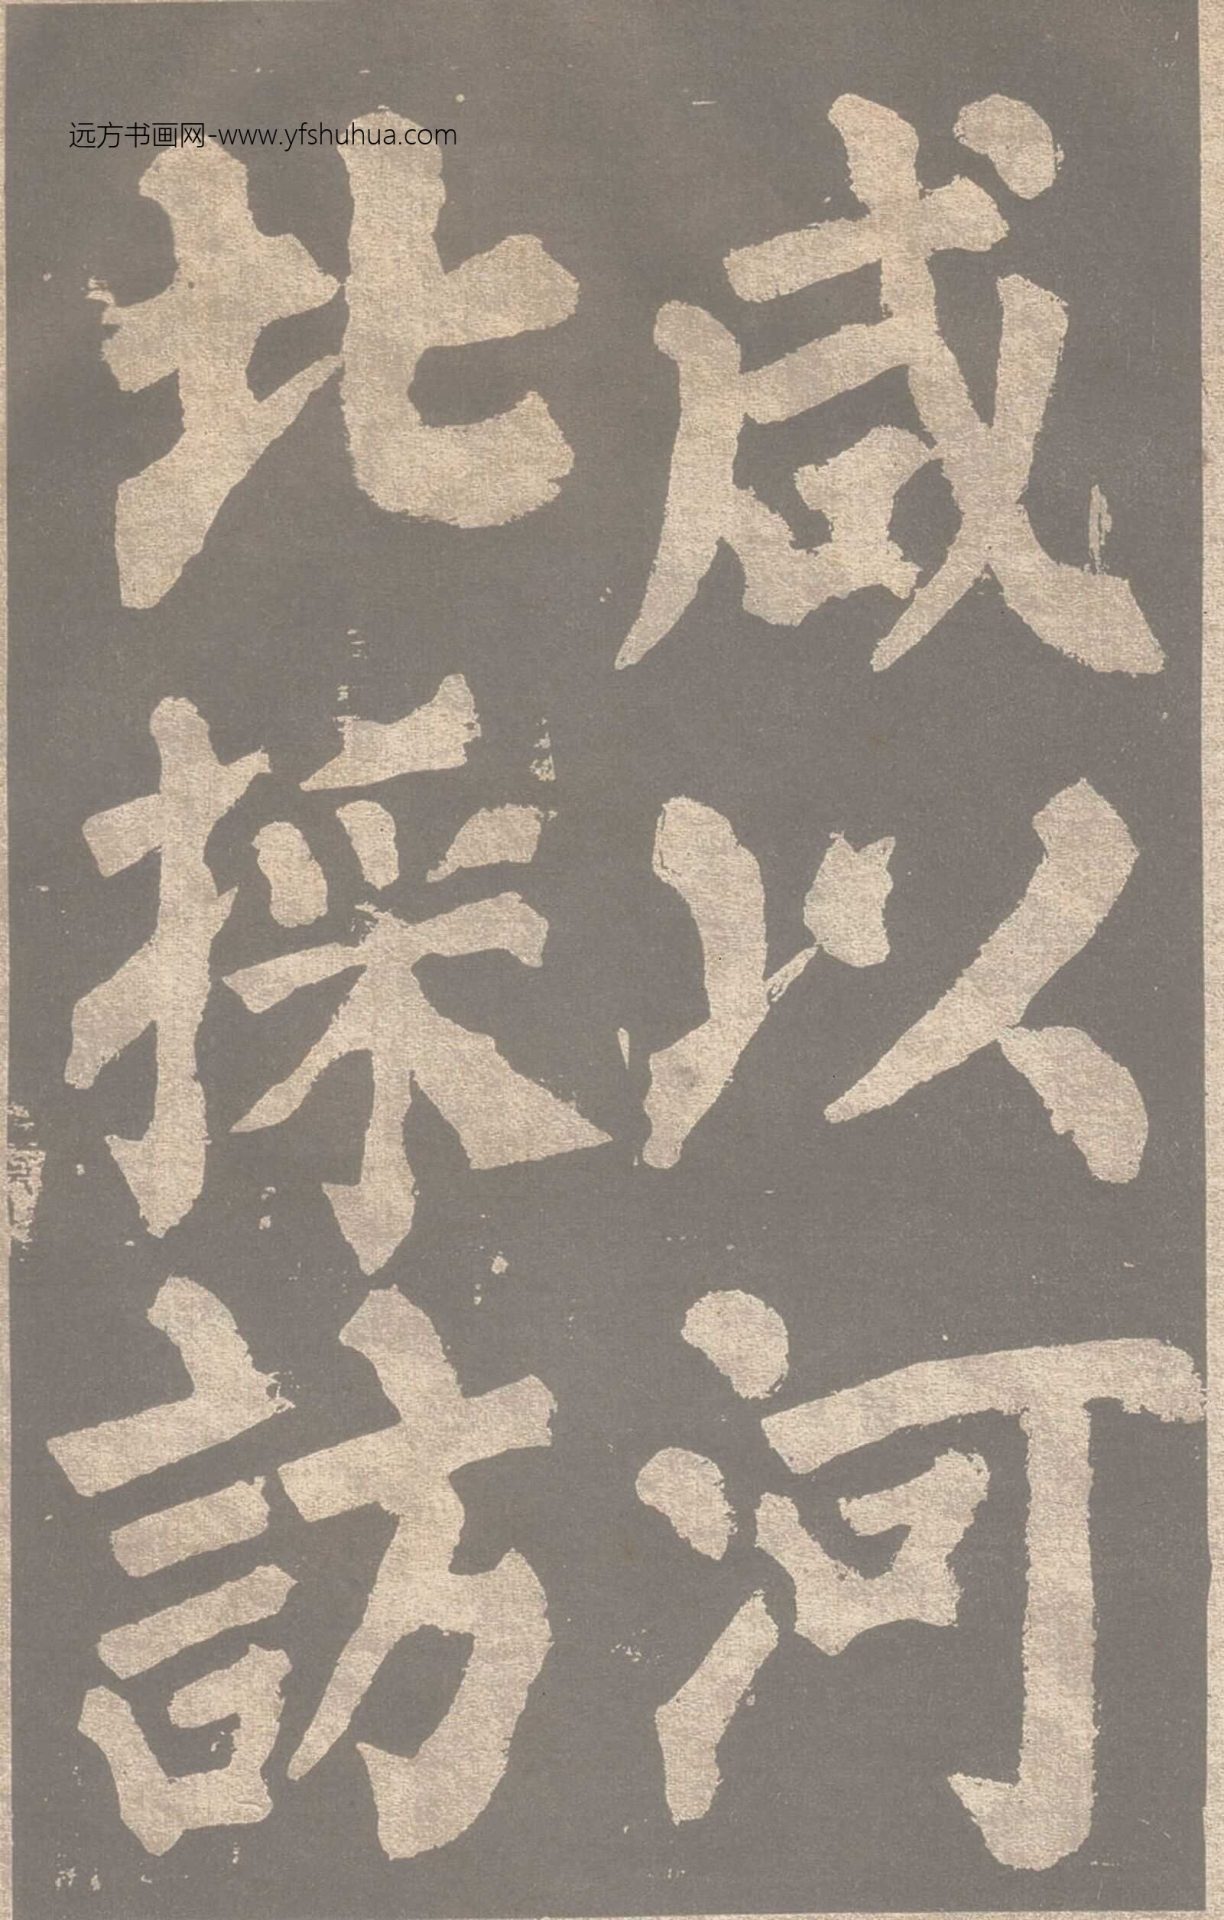 远方书画网-www.yfshuhua.com
咸以河
北採訪